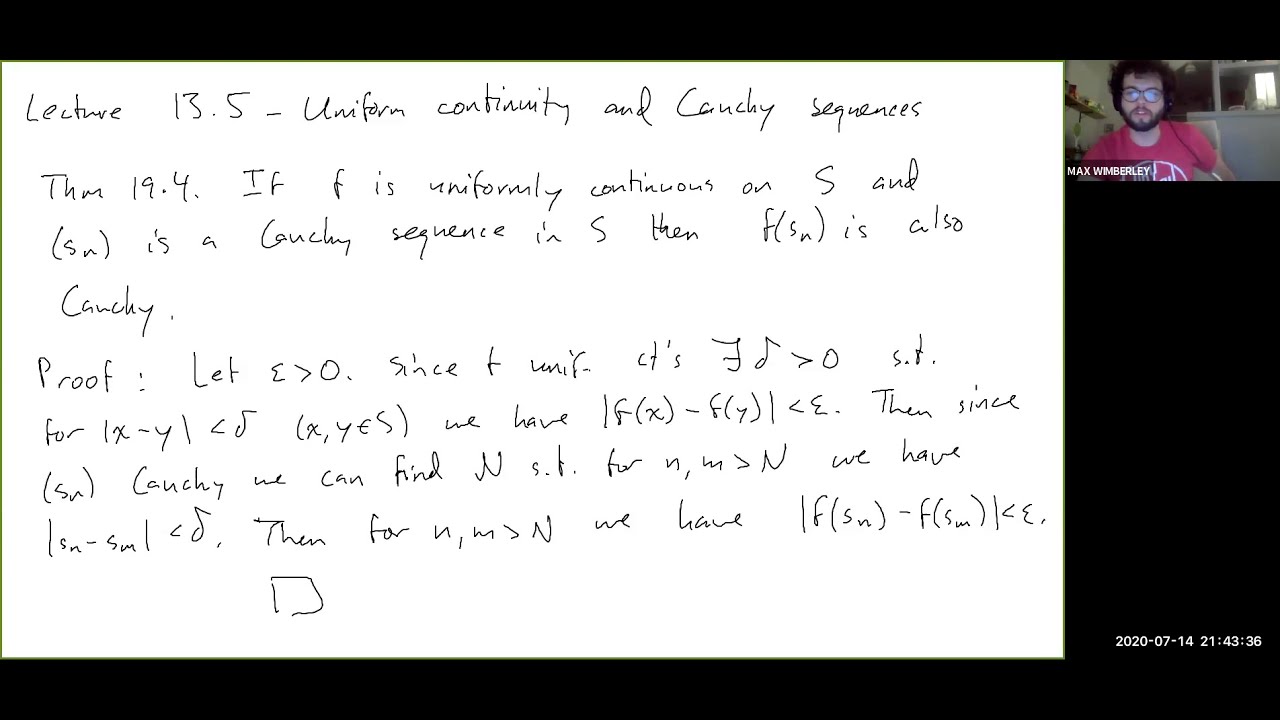 Lecture 13.5 - Uniform continuity and Cauchy sequences
Thm 19.4. If f is uniformly continuous on S and
(sₙ) is a Cauchy sequence in S then f(sₙ) is also
Cauchy.
Proof: Let ε>0. Since f unif. ct's ∃ δ>0 s.t.
for |x-y|<δ (x,y∈S) we have |f(x)-f(y)|<ε. Then since
(sₙ) Cauchy we can find N s.t. for n,m>N we have
|sₙ-sₘ|<δ. Then for n,m>N we have |f(sₙ)-f(sₘ)|<ε.
□
MAX WIMBERLEY
2020-07-14 21:43:36